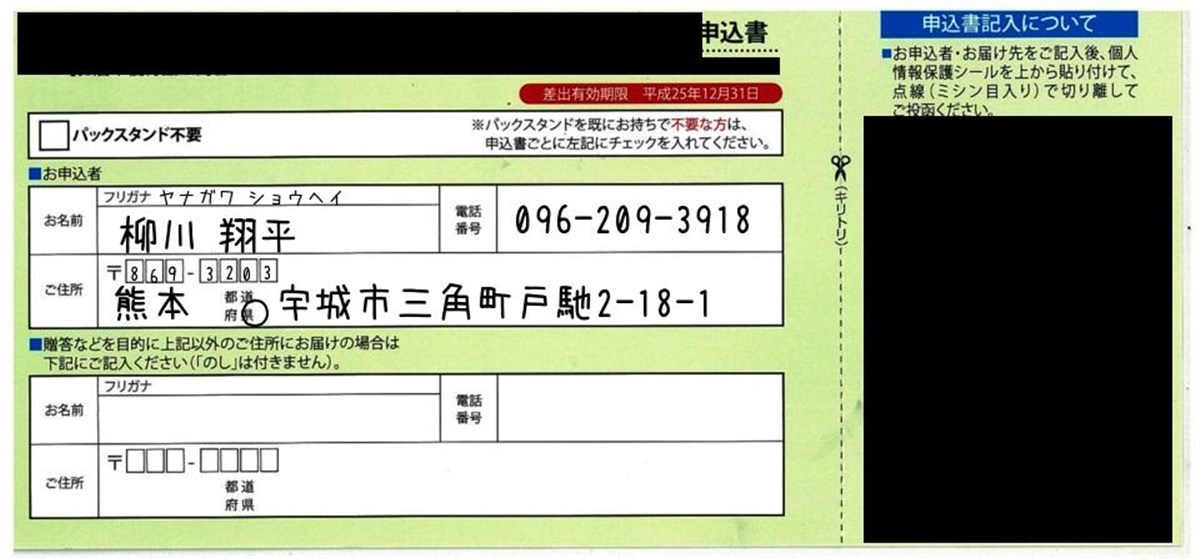 申込書
差出有効期限 平成25年12月31日
パックスタンド不要
※パックスタンドを既にお持ちで不要な方は、
申込書ごとに左記にチェックを入れてください。
■お申込者
お名前
フリガナ ヤナガワ ショウヘイ
柳川 翔平
電話
番号
096-209-3918
ご住所
〒869-3203
熊本 都道府県 宇城市三角町戸馳2-18-1
■贈答などを目的に上記以外のご住所にお届けの場合は
下記にご記入ください(「のし」は付きません)。
お名前
フリガナ
電話
番号
ご住所
〒
都道
府県
(キリトリ)
申込書記入について
■お申込者・お届け先をご記入後、個人
情報保護シールを上から貼り付けて、
点線(ミシン目入り)で切り離して
ご投函ください。